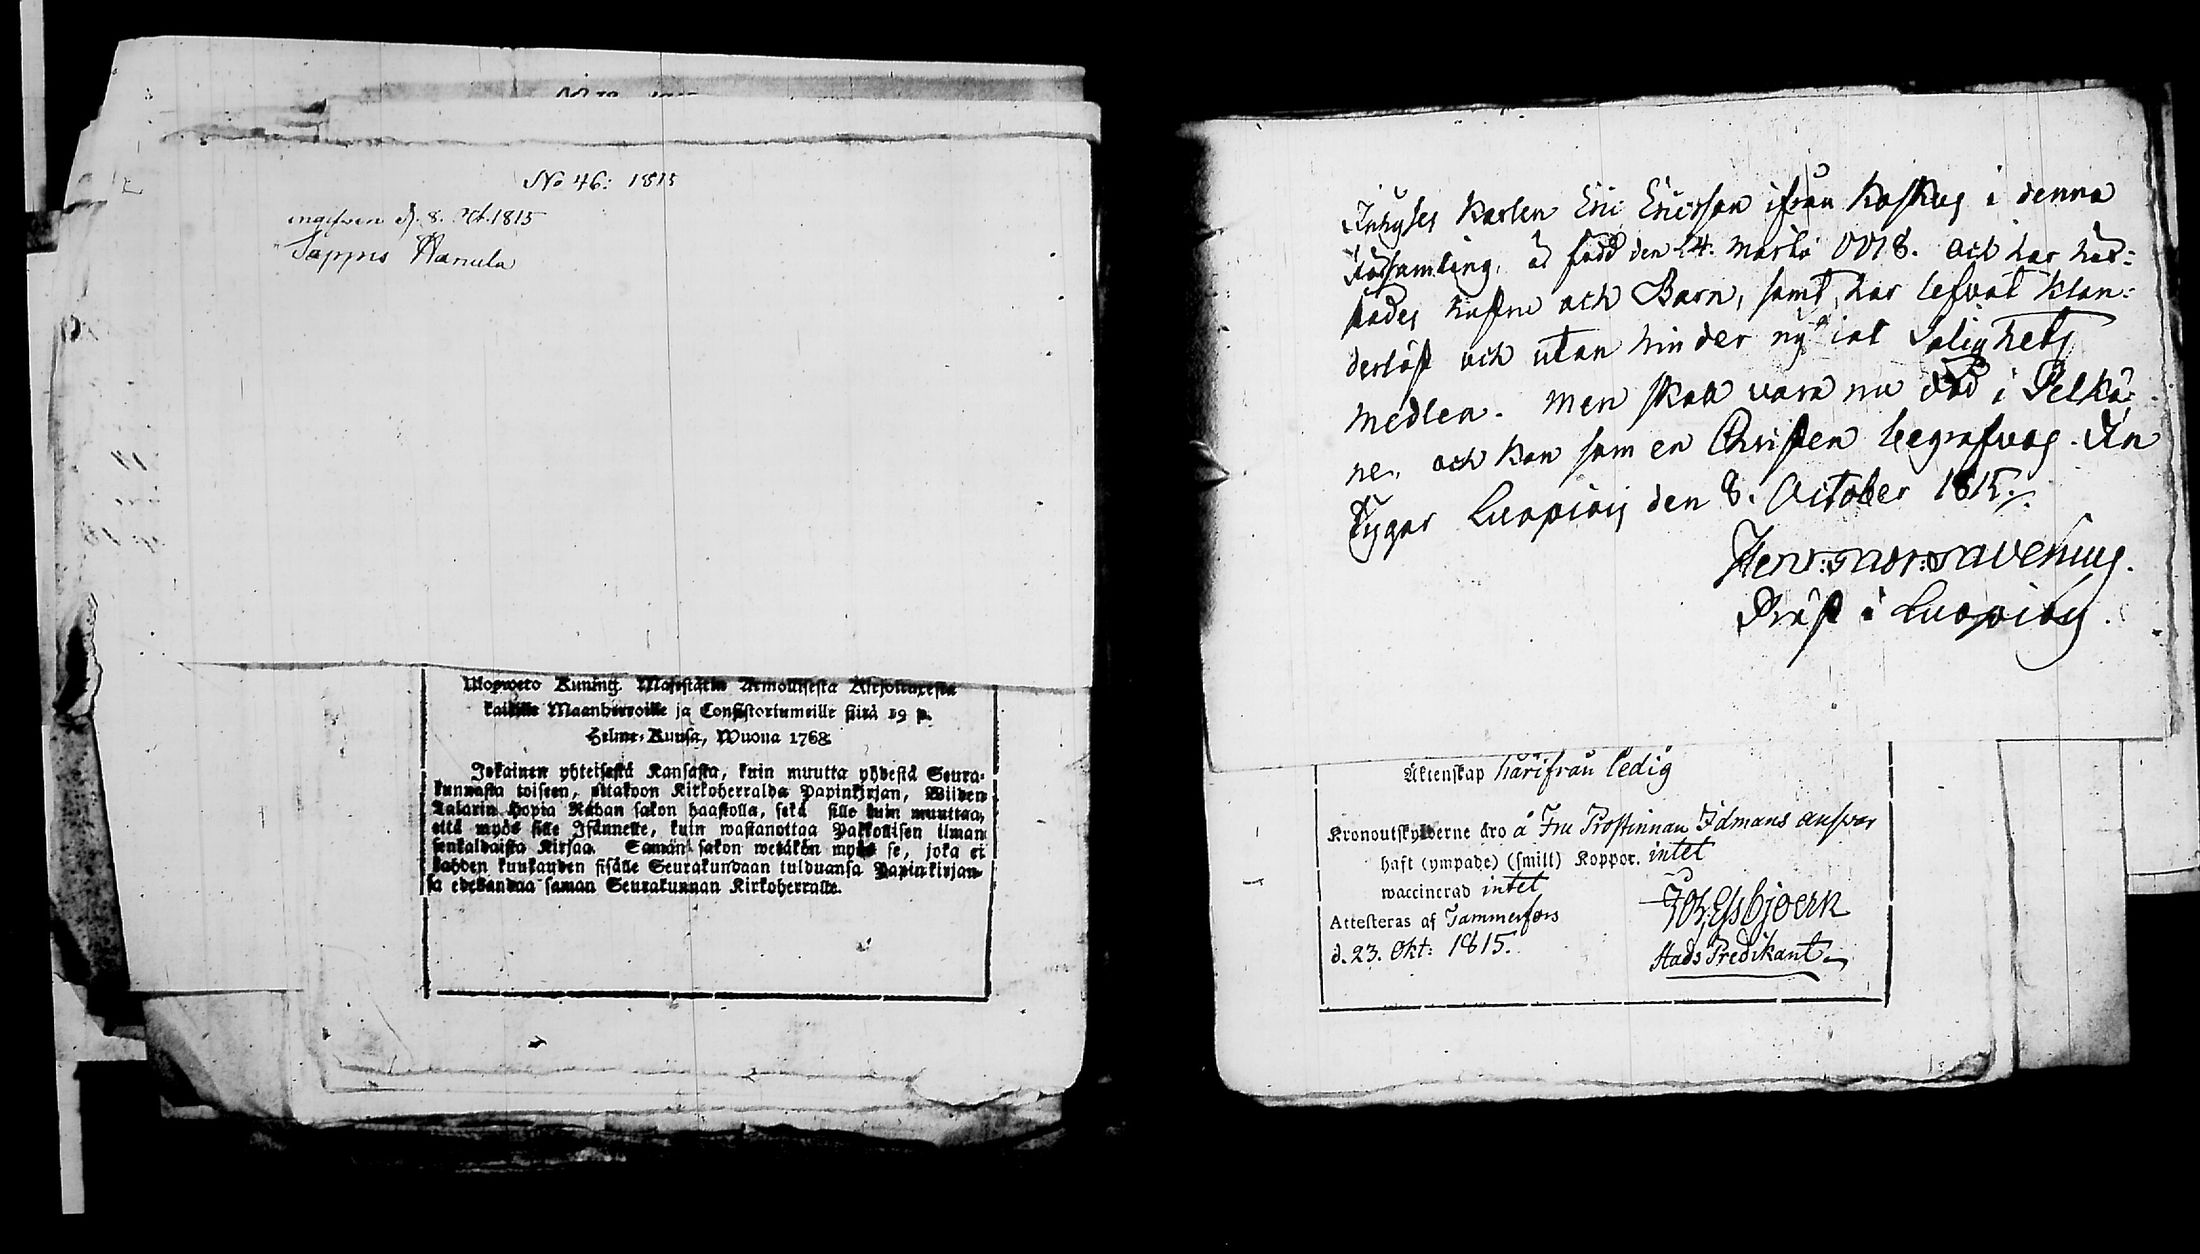 No 46: 1815
ingifven d. 8. Oct. 1815
Sappis Hanula
Ulosweto Kuning. Majestätin Armollisesta Kirjoituxesta
kaikille Maanherroille ja Consistoriumeille siitä 19 p.
Helme-Kuusa, Wuona 1768
Jokainen yhteisestä Kansasta, kuin muutta yhdestä Seura-
kunnasta toiseen, ottakoon Kirkoherralda Papinkirjan, Wiiden
Talarin Hopia Rahan sakon haastolla, sekä sille kuin muuttaa,
että myös sille Isännelle, kuin wastanottaa Palkollisen ilman
senkaldaista Kirjaa. Samān sakon wetäkön myös se, joka ei
kahden kuukauden sisälle Seurakundaan tulduansa Papinkirjan-
sa edesandaa saman Seurakunnan Kirkoherralle.
Inhyses Karlen Eric Ericsson ifrån Kaskus i denna
Församling, är född den 24. Martii 1778. och har här-
städes hustru och Barn, samt har lefvat klan-
derlöst och utan hinder nyttiat Salighets
medlen. Men skall vara nu död i Pelkä-
ne, och kan som en Christen begrafvas. Än
tygar Luopiois den 8. October 1815.
Henr:
Präst i Luopiois.
Äktenskap härifrån ledig
Kronoutskylderne äro å Fru Prostinnan Idmans ansvar
haft (ympade) (smitt) Koppor. intet
waccinerad intet
Attesteras af Tammerfors
d. 23. Okt: 1815.
Joh: Essbjoern
Stads Predikant